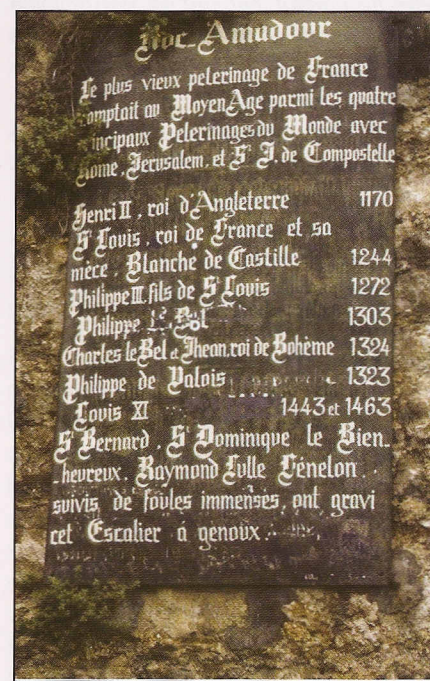 Roc-Amadour
Le plus vieux pelerinage de France
comptait au Moyen Age parmi les quatre
principaux Pelerinages du Monde avec
Rome, Jerusalem, et St J. de Compostelle
Henri II, roi d'Angleterre 1170
St Louis, roi de France et sa
mère, Blanche de Castille 1244
Philippe III fils de St Louis 1272
Philippe le Bel 1303
Charles le Bel et Jhean, roi de Bohème 1324
Philippe de Valois 1323
Louis XI 1443 et 1463
St Bernard, St Dominique le Bien-
-heureux, Raymond Lulle Fénelon
suivis de foules immenses, ont gravi
cet Escalier à genoux